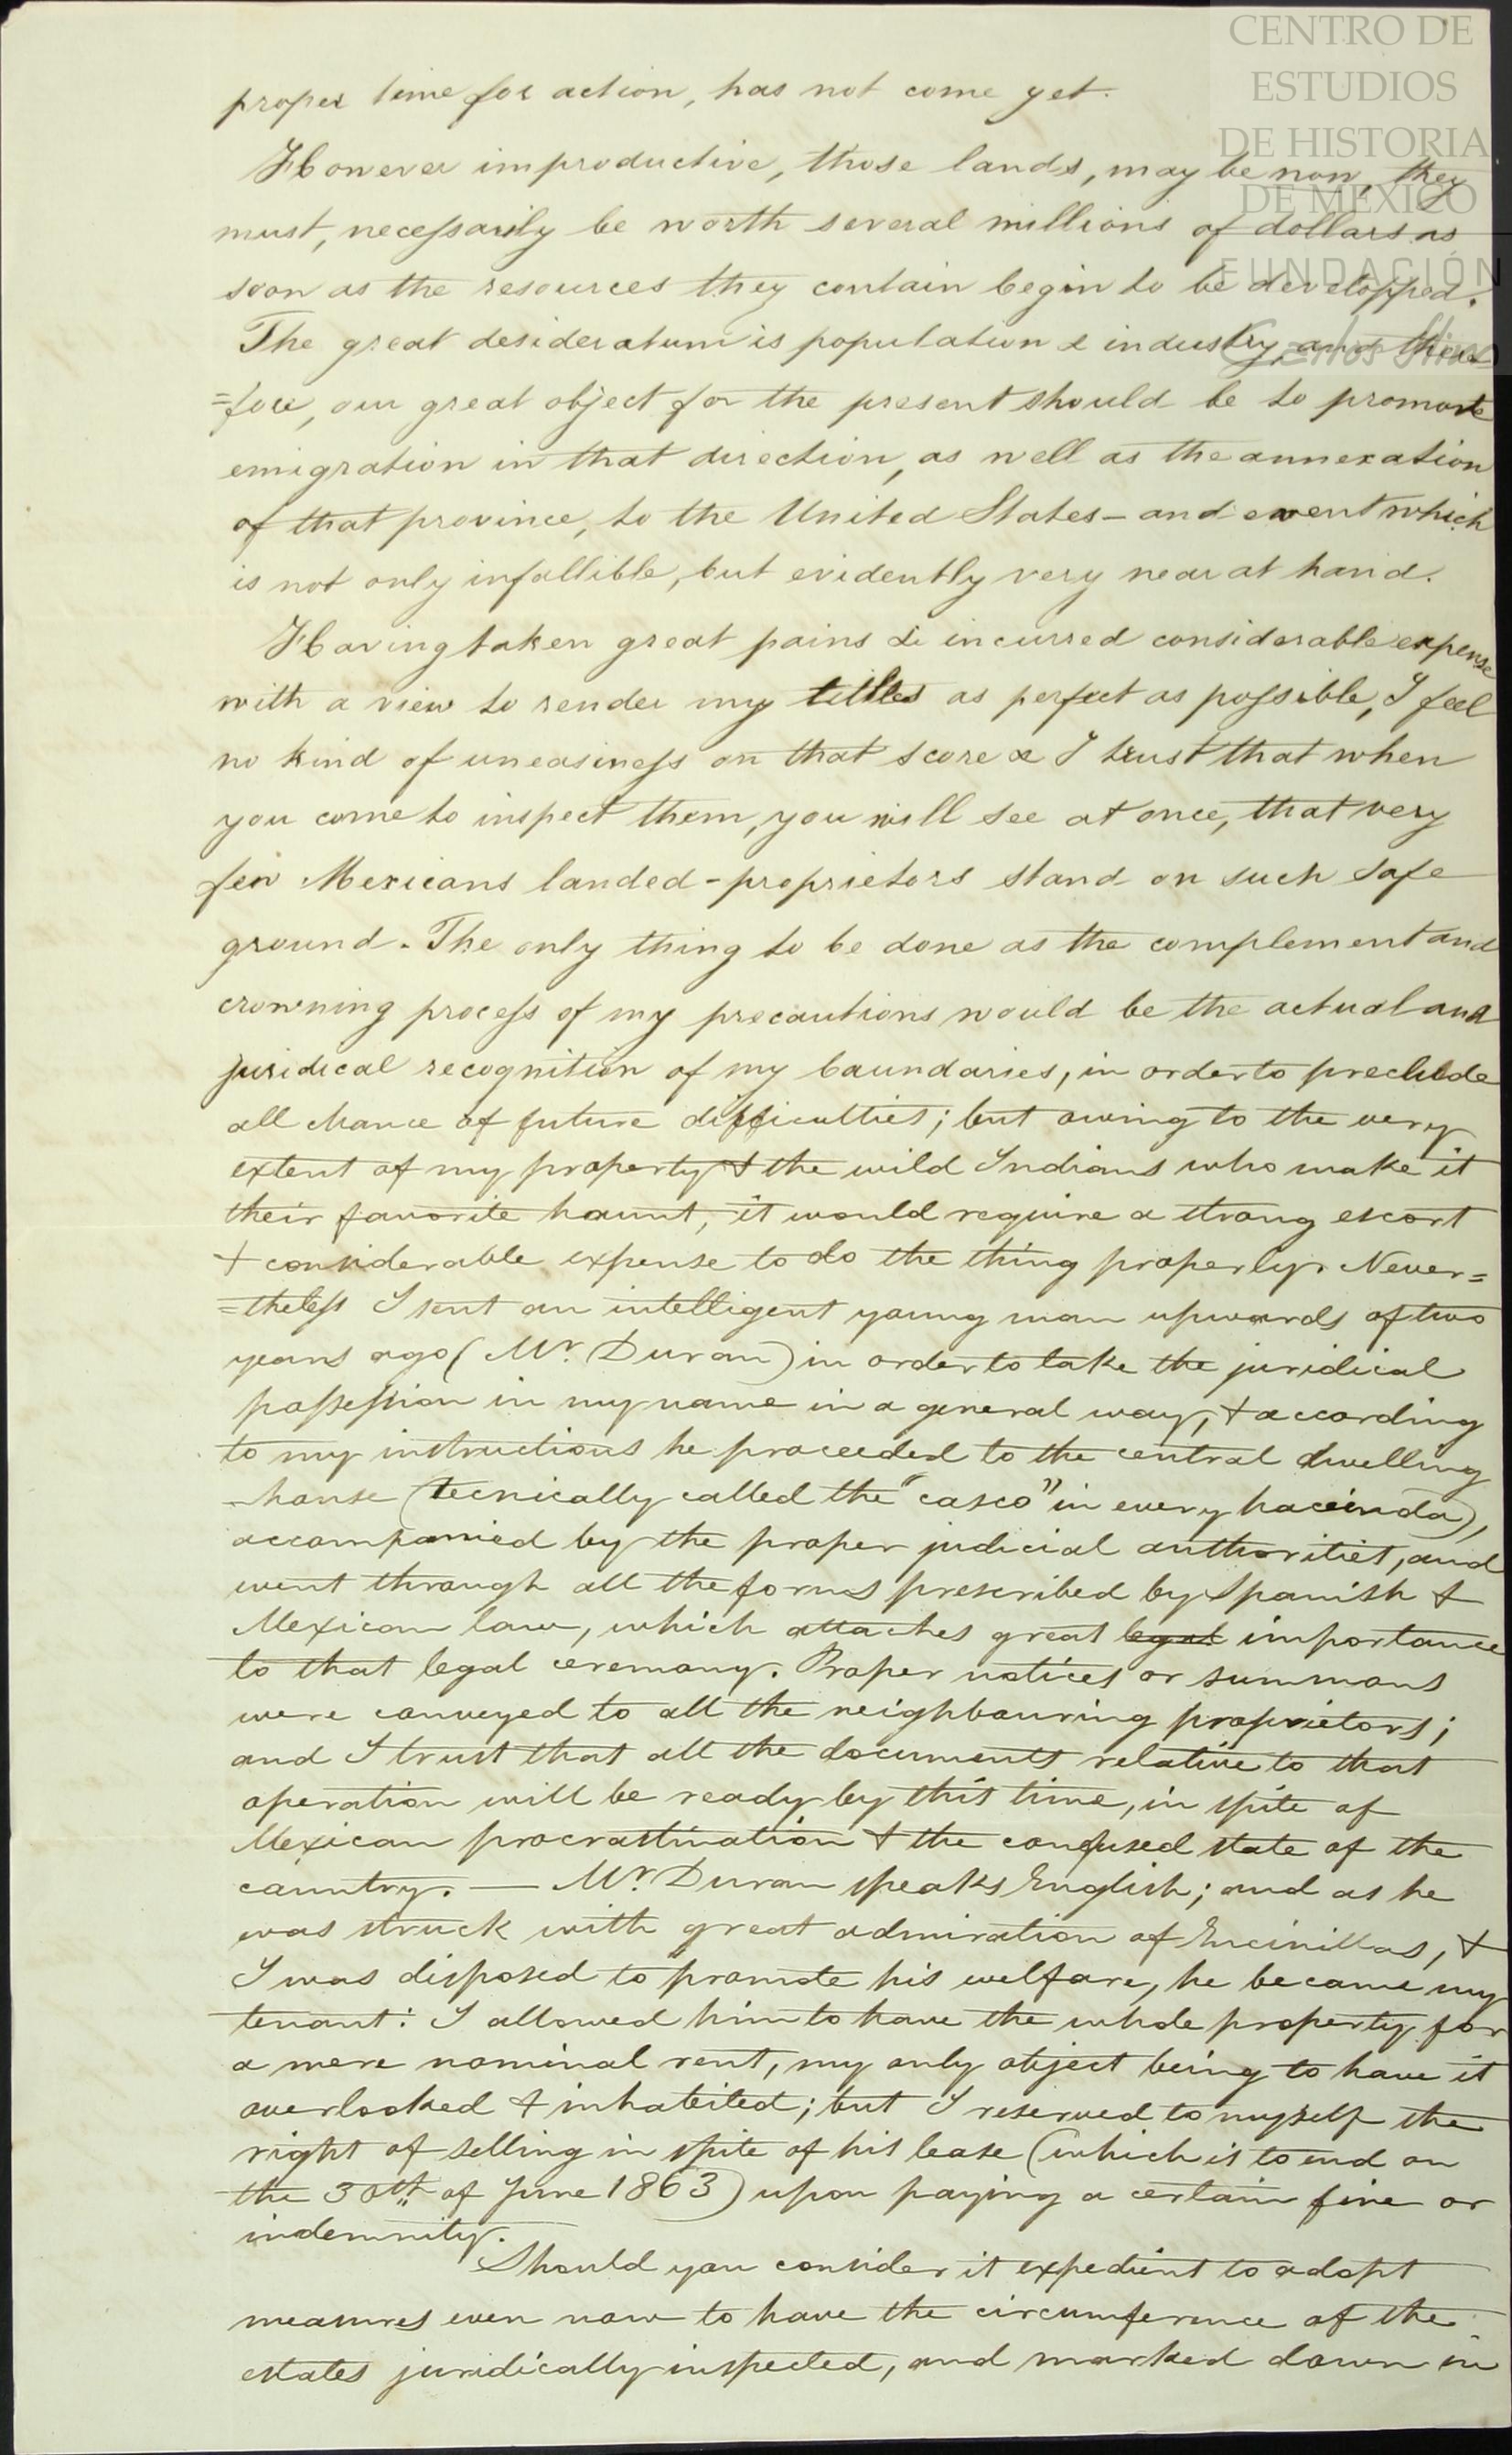 CENTRO DE
ESTUDIOS
DE HISTORIA
DE MEXICO
FUNDACIÓN
proper time for action, has not come yet.
However improductive, those lands, may be now, they
must, necessarily be worth several millions of dollars as
soon as the resources they contain begin to be developped.
The great desideratum is population & industry, and there=
=fore, our great object for the present should be to promote
emigration in that direction, as well as the annexation
of that province, to the United States - and event which
is not only infallible, but evidently very near at hand.
Having taken great pains & incurred considerable expense
with a view to render my titles as perfect as possible, I feel
no kind of uneasiness on that score & I trust that when
you come to inspect them, you will see at once, that very
few Mexicans landed-proprietors stand on such safe
ground. The only thing to be done as the complement and
crowning process of my precautions would be the actual and
juridical recognition of my baundaries, in order to preclude
all chance of future difficulties; but owing to the very
extent of my property & the wild Indians who make it
their favorite haunt, it would require a strong escort
& considerable expense to do the thing properly. Never=
=theless I sent an intelligent young man upwards of two
years ago (Mr. Duran) in order to take the juridical
possession in my name in a general way, & according
to my instructions he proceeded to the central dwelling
-house (tecnically called the "casco" in every hacienda),
accompanied by the proper judicial authorities, and
went through all the forms prescribed by Spanish &
Mexican law, which attaches great legal importance
to that legal ceremony. Proper notices or summons
were conveyed to all the neighbouring proprietors;
and I trust that all the documents relative to that
operation will be ready by this time, in spite of
Mexican procrastination & the confused state of the
country. — Mr. Duran speaks English; and as he
was struck with great admiration of Encinillas, &
I was disposed to promote his welfare, he became my
tenant: I allowed him to have the whole property for
a mere nominal rent, my only object being to have it
overlooked & inhabited; but I reserved to myself the
right of selling in spite of his lease (which is to end on
the 30th of June 1863) upon paying a certain fine or
indemnity.
Should you consider it expedient to adopt
measures even now to have the circumference of the
estates juridically inspected, and marked down in